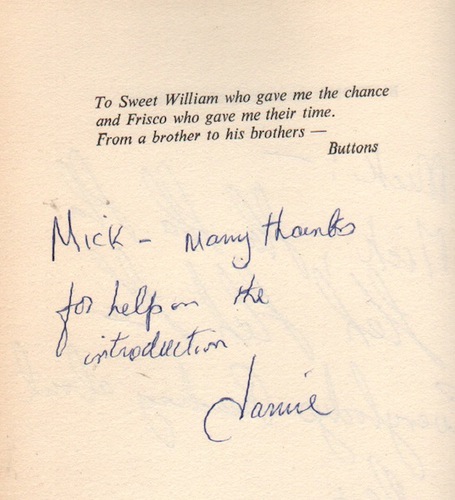 To Sweet William who gave me the chance
and Frisco who gave me their time.
From a brother to his brothers —
Buttons
Mick – Many thanks
for help on the
introduction
Jamie